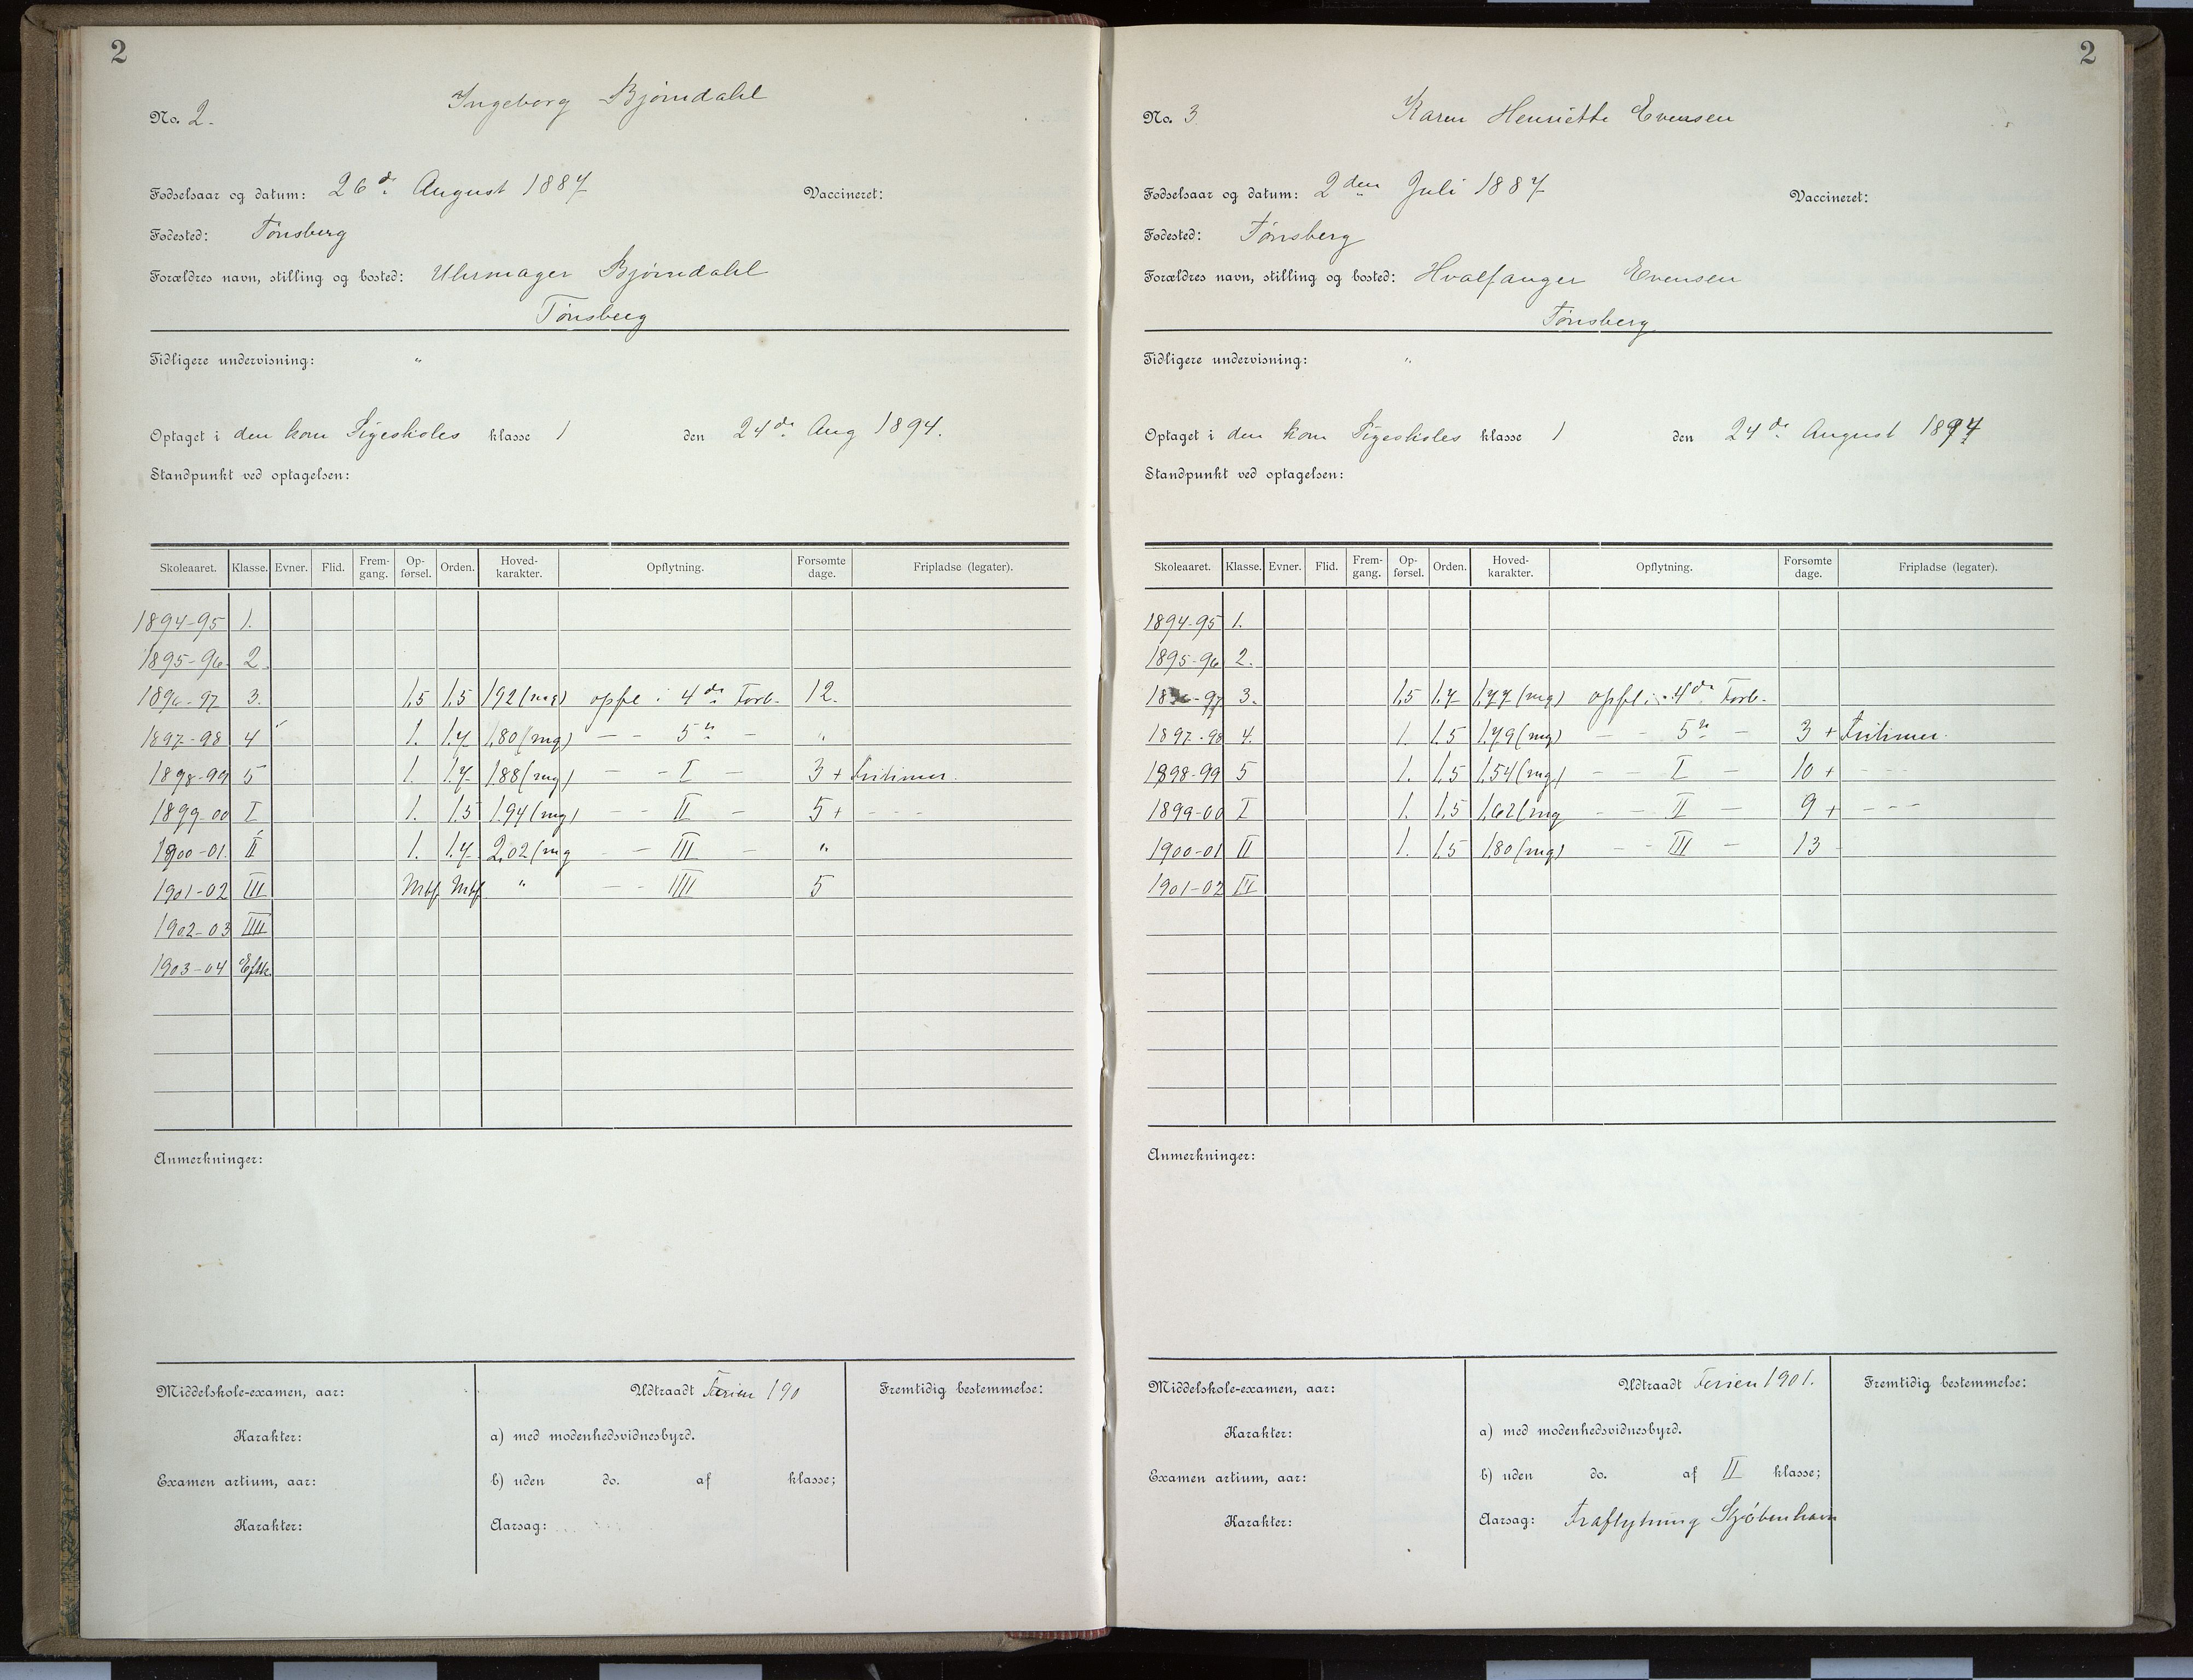 2
Ingeborg Bjørndahl
No. 2.
Fødselsaar og datum: 26de August 1887 Vaccineret:
Fødested: Tønsberg
Forældres navn, stilling og bosted: Uhrmager Bjørndahl
Tønsberg
Tidligere undervisning: "
Optaget i den kom Pigeskoles klasse 1 den 24de Aug 1894.
Standpunkt ved optagelsen:
Skoleaaret. Klasse. Evner. Flid. Frem-gang. Op-førsel. Orden. Hoved-karakter. Opflytning. Forsømte dage. Fripladse (legater).
1894-95 1.
1895-96 2.
1896-97 3. 1,5 1,5 1,92 (mg) opfl i 4de Forb. 12.
1897-98 4 1. 1,7 1,80 (mg) — — 5te — "
1898-99 5 1. 1,7 1,88 (mg) — — I — 3 + Fritimer.
1899-00 I 1. 1,5 1,94 (mg) — — II — 5 + - - -
1900-01. II 1. 1,7 2,02 (mg — — III — "
1901-02 III Mbf Mbf " — — IIII 5
1902-03 IIII
1903-04 Eftk.
Anmerkninger:
Middelskole-examen, aar: Udtraadt Ferien 190 Fremtidig bestemmelse:
Karakter: a) med modenhedsvidnesbyrd.
Examen artium, aar: b) uden do. af klasse;
Karakter: Aarsag:
2
No. 3 Karen Henriette Evensen
Fødselsaar og datum: 2den Juli 1887 Vaccineret:
Fødested: Tønsberg
Forældres navn, stilling og bosted: Hvalfanger Evensen
Tønsberg
Tidligere undervisning: "
Optaget i den kom Pigeskoles klasse 1 den 24de August 1894
Standpunkt ved optagelsen:
Skoleaaret. Klasse. Evner. Flid. Frem-gang. Op-førsel. Orden. Hoved-karakter. Opflytning. Forsømte dage. Fripladse (legater).
1894-95 1.
1895-96 2.
1896-97 3. 1,5 1,7 1,77 (mg) opfl. i 4de Forb.
1897-98 4. 1. 1,5 1,79 (mg) — — 5te — 3 + Fritimer.
1898-99 5 1. 1,5 1,54 (mg) — — I — 10 + - - -
1899-00 I 1. 1,5 1,62 (mg — — II — 9 + - - -
1900-01 II 1. 1,5 1,80 (mg) — — III — 13
1901-02 III
Anmerkninger:
Middelskole-examen, aar: Udtraadt Ferien 1901. Fremtidig bestemmelse:
Karakter: a) med modenhedsvidnesbyrd.
Examen artium, aar: b) uden do. af II klasse;
Karakter: Aarsag: Fraflytning Kjøbenhavn